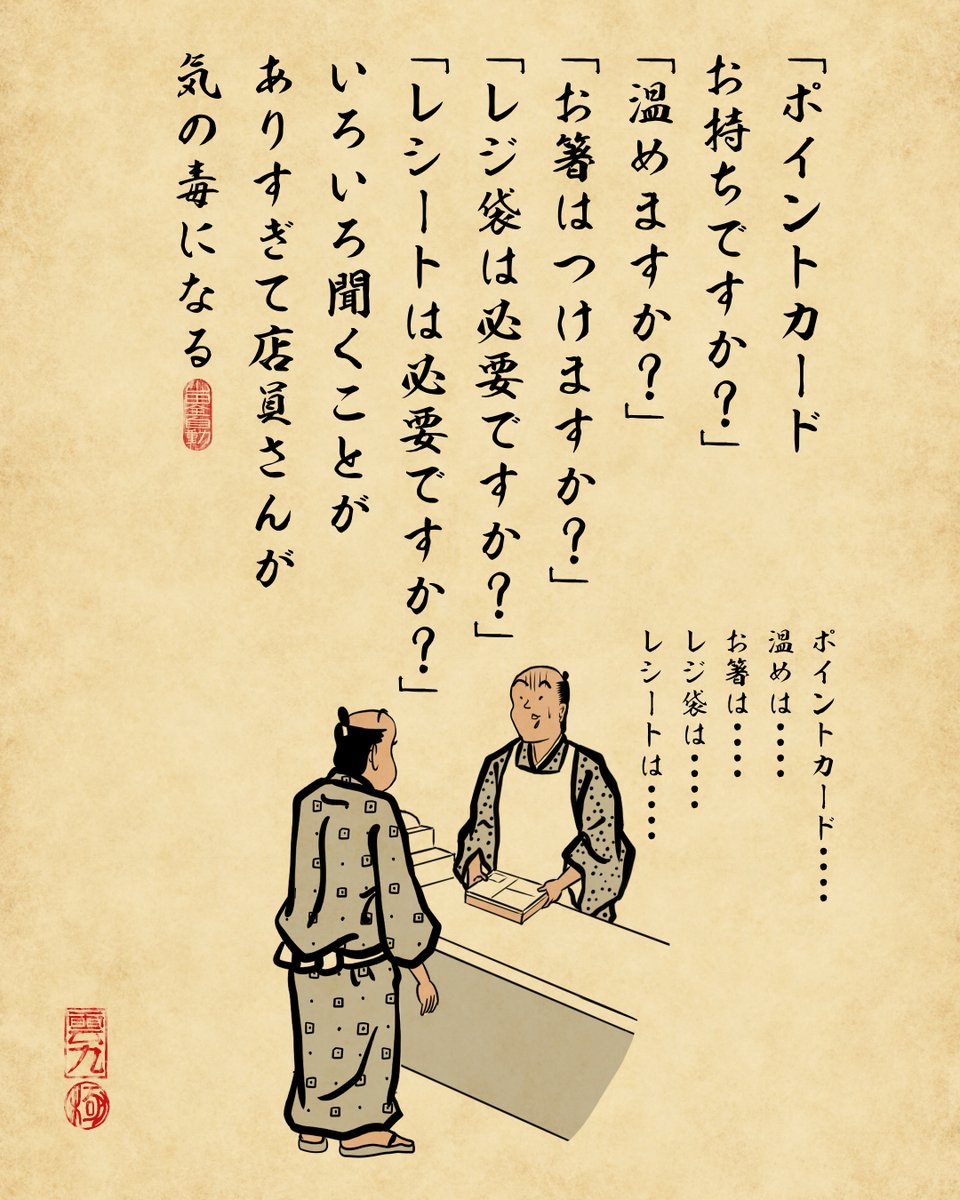 「ポイントカード
お持ちですか？」
「温めますか？」
「お箸はつけますか？」
「レジ袋は必要ですか？」
「レシートは必要ですか？」
いろいろ聞くことが
ありすぎて店員さんが
気の毒になる
ポイントカード‥‥
温めは‥‥
お箸は‥‥
レジ袋は‥‥
レシートは‥‥